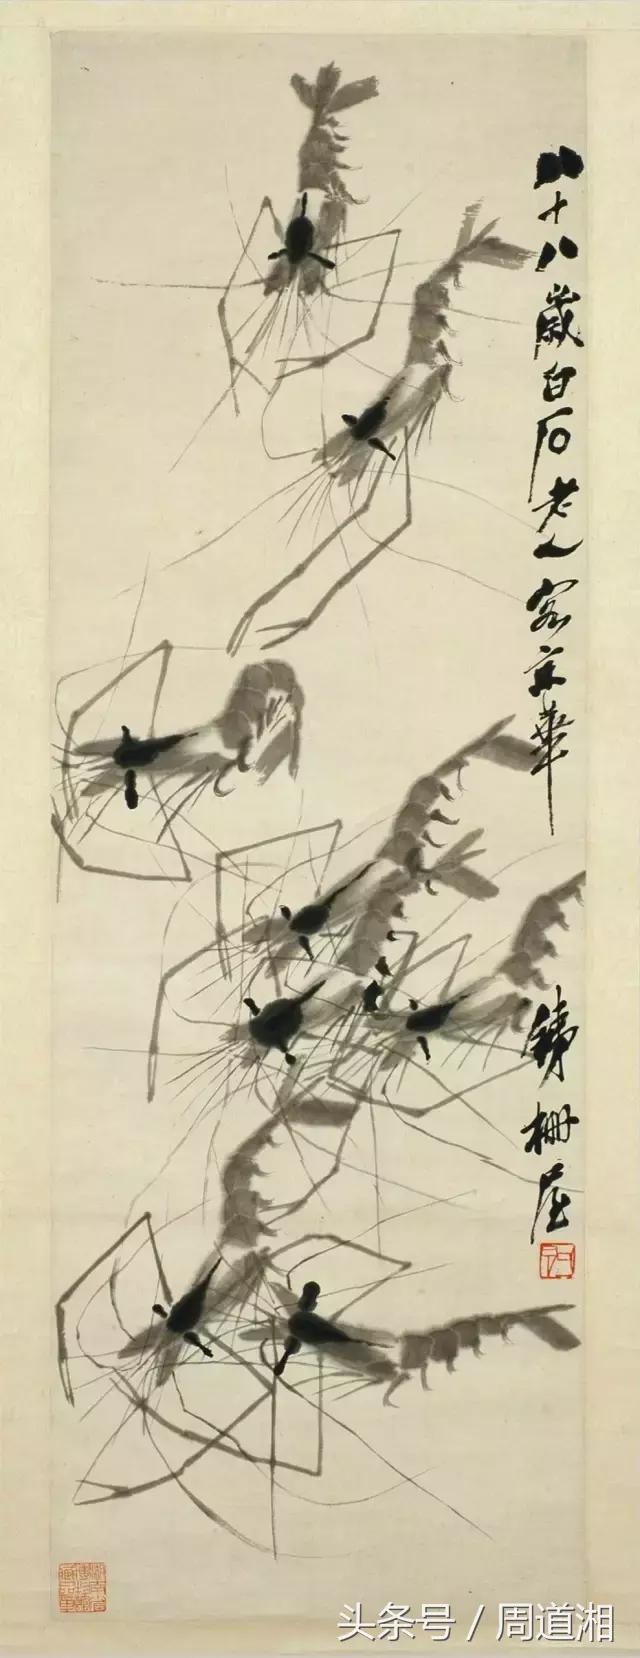 八十八歲白石老人客京華
鐵柵屋
头条号 / 周道湘